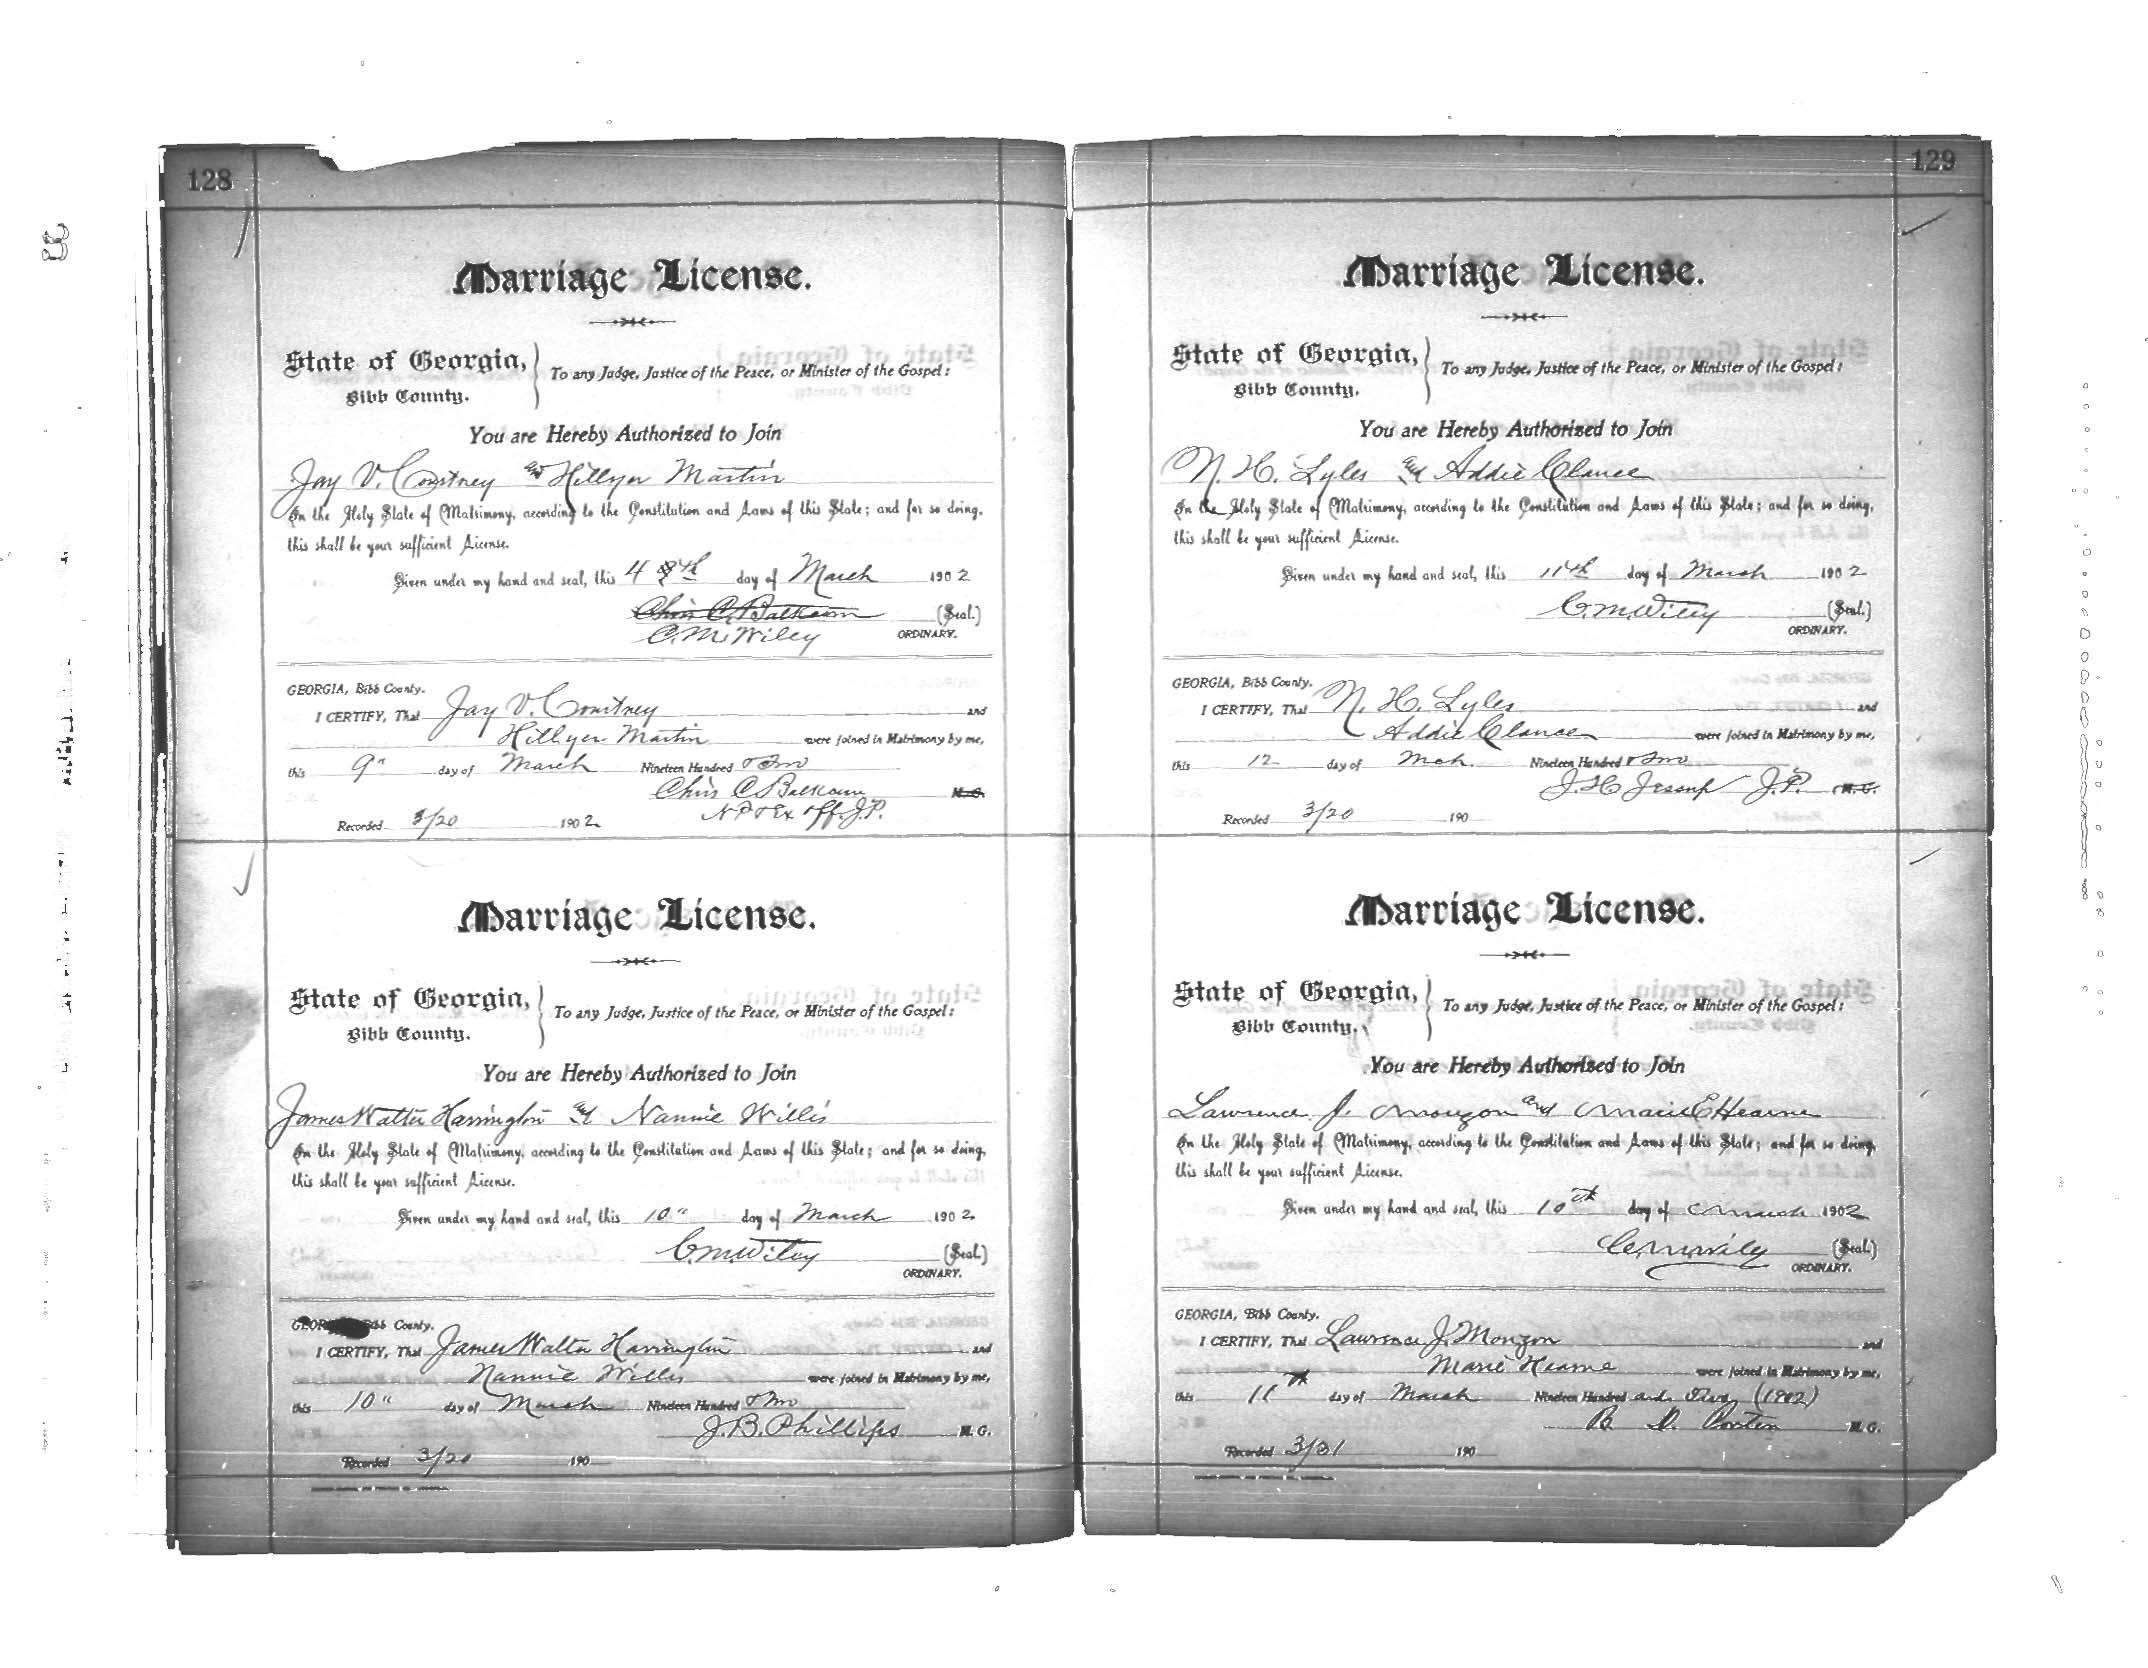 128
Marriage License.
State of Georgia,
Bibb County.
To any Judge, Justice of the Peace, or Minister of the Gospel:
You are Hereby Authorized to Join
Jay V. Courtney and Hillyer Martin
In the Holy State of Matrimony, according to the Constitution and Laws of this State; and for so doing,
this shall be your sufficient License.
Given under my hand and seal, this 4 th day of March 1902
Chris C. Balkcom (Seal.)
C. M. Wiley ORDINARY.
GEORGIA, Bibb County.
I CERTIFY, That Jay V. Courtney and
Hillyer Martin were joined in Matrimony by me,
this 9" day of March Nineteen Hundred & Two
Chris C Balkcom M. G.
N P & Ex off. J.P.
Recorded 3/20 1902
Marriage License.
State of Georgia,
Bibb County.
To any Judge, Justice of the Peace, or Minister of the Gospel:
You are Hereby Authorized to Join
James Walter Harrington and Nannie Willis
In the Holy State of Matrimony, according to the Constitution and Laws of this State; and for so doing,
this shall be your sufficient License.
Given under my hand and seal, this 10" day of March 1902
C. M. Wiley (Seal.)
ORDINARY.
GEORGIA, Bibb County.
I CERTIFY, That James Walter Harrington and
Nannie Willis were joined in Matrimony by me,
this 10" day of March Nineteen Hundred & Two
J. B. Phillips M. G.
Recorded 3/20 190
129
Marriage License.
State of Georgia,
Bibb County.
To any Judge, Justice of the Peace, or Minister of the Gospel:
You are Hereby Authorized to Join
N. H. Lyles and Addie Clance
In the Holy State of Matrimony, according to the Constitution and Laws of this State; and for so doing,
this shall be your sufficient License.
Given under my hand and seal, this 11th day of March 1902
C. M. Wiley (Seal.)
ORDINARY.
GEORGIA, Bibb County.
I CERTIFY, That N. H. Lyles and
Addie Clance were joined in Matrimony by me,
this 12 day of Mch. Nineteen Hundred & Two
J. H. Jessup J.P. M. G.
Recorded 3/20 190
Marriage License.
State of Georgia,
Bibb County.
To any Judge, Justice of the Peace, or Minister of the Gospel:
You are Hereby Authorized to Join
Lawrence J. Monzon and Marie E Hearne
In the Holy State of Matrimony, according to the Constitution and Laws of this State; and for so doing,
this shall be your sufficient License.
Given under my hand and seal, this 10th day of March 1902
C. M. Wiley (Seal.)
ORDINARY.
GEORGIA, Bibb County.
I CERTIFY, That Lawrence J. Monzon and
Marie Hearne were joined in Matrimony by me,
this 11th day of March Nineteen Hundred and Two (1902)
B. D. Porter M. G.
Recorded 3/31 190